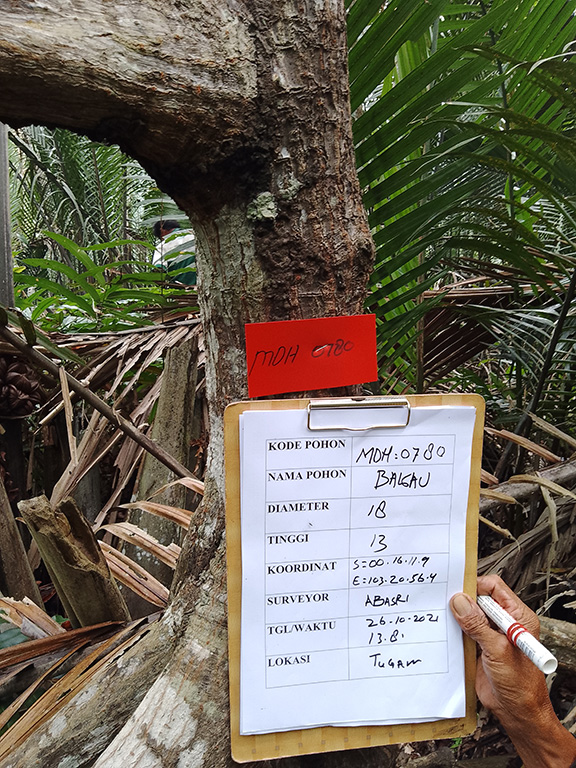 MDH 0780
KODE POHON MDH:0780
NAMA POHON BAKAU
DIAMETER 18
TINGGI 13
KOORDINAT S=00.16.11.9
E=103.20.56.4
SURVEYOR ABASRI
TGL/WAKTU 26.10.2021
13.81
LOKASI TUGAM